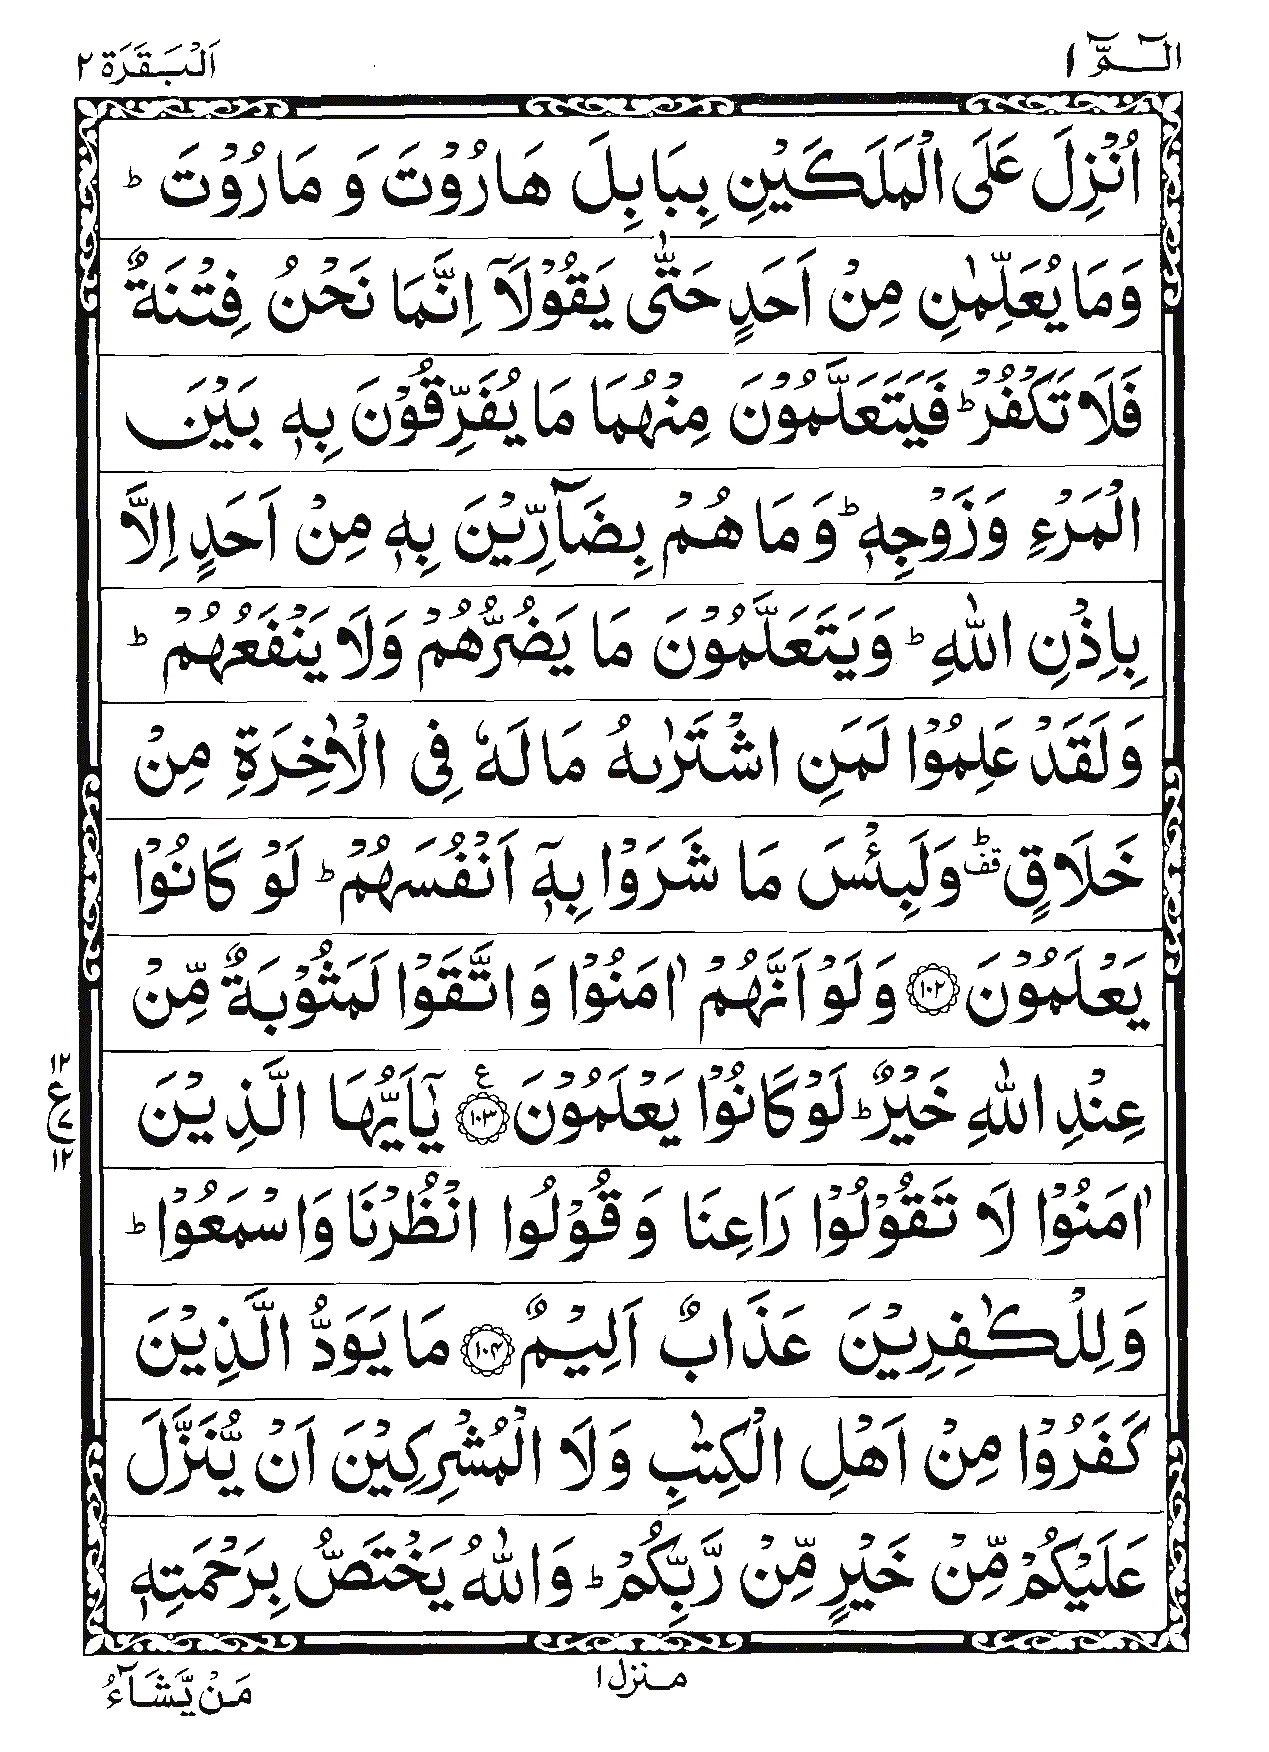 الٓـمّٓ ١
اَلْبَـقَرَة ٢
اُنْزِلَ عَلَى الْمَلَكَيْنِ بِبَابِلَ هَارُوْتَ وَ مَارُوْتَ ؕ
وَمَا يُعَلِّمٰنِ مِنْ اَحَدٍ حَتّٰى يَقُوْلَاۤ اِنَّمَا نَحْنُ فِتْنَةٌ
فَلَا تَكْفُرْ ؕ فَيَتَعَلَّمُوْنَ مِنْهُمَا مَا يُفَرِّقُوْنَ بِهٖ بَيْنَ
الْمَرْءِ وَزَوْجِهٖ ؕ وَمَا هُمْ بِضَآرِّيْنَ بِهٖ مِنْ اَحَدٍ اِلَّا
بِاِذْنِ اللّٰهِ ؕ وَيَتَعَلَّمُوْنَ مَا يَضُرُّهُمْ وَلَا يَنْفَعُهُمْ ؕ
وَلَقَدْ عَلِمُوْا لَمَنِ اشْتَرٰىهُ مَا لَهٗ فِى الْاٰخِرَةِ مِنْ
خَلَاقٍ ؕقف وَلَبِئْسَ مَا شَرَوْا بِهٖۤ اَنْفُسَهُمْ ؕ لَوْ كَانُوْا
يَعْلَمُوْنَ ۝١٠٢ وَلَوْ اَنَّهُمْ اٰمَنُوْا وَ اتَّقَوْا لَمَثُوْبَةٌ مِّنْ
عِنْدِ اللّٰهِ خَيْرٌ ؕ لَوْ كَانُوْا يَعْلَمُوْنَ ۝١٠٣ع يٰٓاَيُّهَا الَّذِيْنَ
١٢
ع
٧
١٢
اٰمَنُوْا لَا تَقُوْلُوْا رَاعِنَا وَ قُوْلُوا انْظُرْنَا وَاسْمَعُوْا ؕ
وَلِلْكٰفِرِيْنَ عَذَابٌ اَلِيْمٌ ۝١٠٤ مَا يَوَدُّ الَّذِيْنَ
كَفَرُوْا مِنْ اَهْلِ الْكِتٰبِ وَلَا الْمُشْرِكِيْنَ اَنْ يُّنَزَّلَ
عَلَيْكُمْ مِّنْ خَيْرٍ مِّنْ رَّبِّكُمْ ؕ وَاللّٰهُ يَخْتَصُّ بِرَحْمَتِهٖ
منزل ١
مَنْ يَّشَآءُ